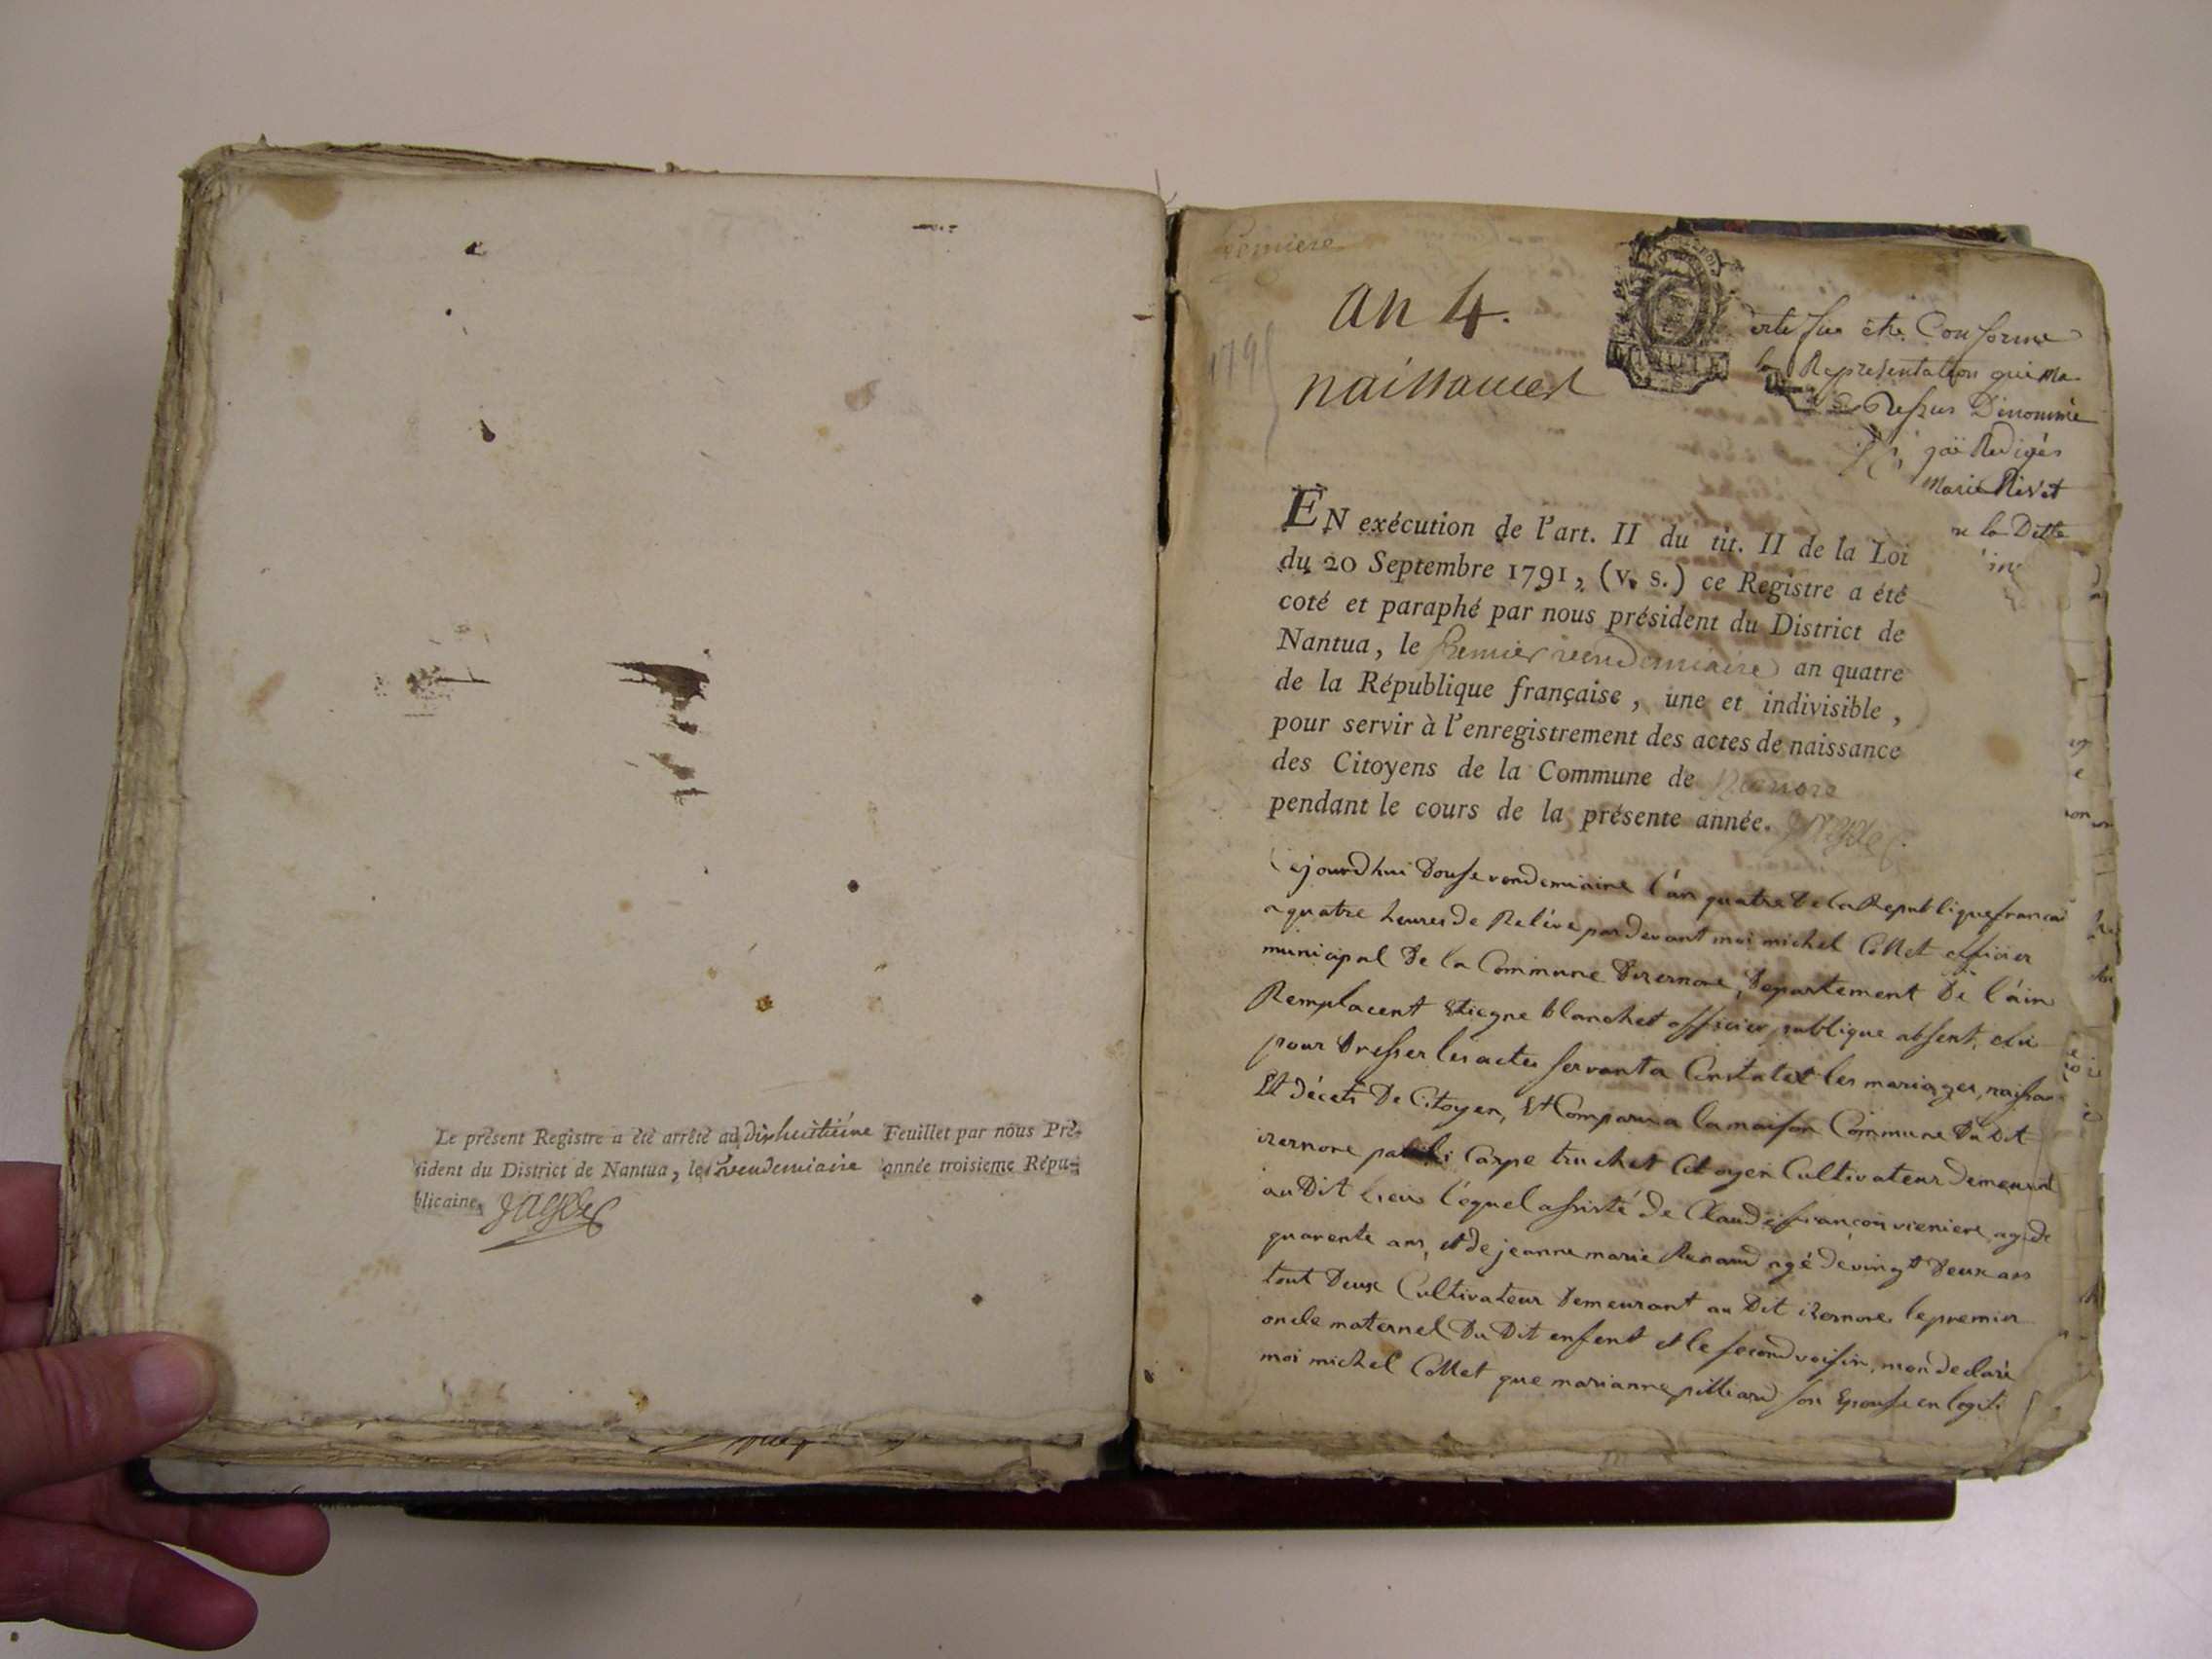 Le présent Registre a été arrêté au dixhuitième Feuillet par nous Pré-
sident du District de Nantua, le vendemiaire année troisieme Répu-
blicaine.
premiere
an 4.
naissances
1795
être Conforme
Representation qui ma
Denommé
jai Redigés
Marie Rivet
la Ditte
EN exécution de l'art. II du tit. II de la Loi
du 20 Septembre 1791, (v. s.) ce Registre a été
coté et paraphé par nous président du District de
Nantua, le premier vendemiaire an quatre
de la République française, une et indivisible,
pour servir à l'enregistrement des actes de naissance
des Citoyens de la Commune de
pendant le cours de la présente année.
Cejourdhui Douse vendemiaire l'an quatre De la Republique francai
a quatre heures de Relévé par devant moi michel Collet officier
municipal De la Commune Dizernore, Departement De l'ain
Remplacent Etiegne blanchet officier publique absent, elu
pour Dresser les actes servant a Constater les mariages, naissan
Et décets De Citoyen, Et Comparu a la maison Commune Du Dit
izernore Carpe truchet Citoyen Cultivateur demeurant
au Dit Lieu léquel assisté de Claude françois agé De
quarente ans, et de jeanne marie Renaud agé de vingt Deux ans
tout Deux Cultivateur Demeurant au Dit izernore, le premier
oncle maternel Du Dit enfent et le second voisin, mon declaré
moi michel Collet que marianne pilliard son Epouse en legiti